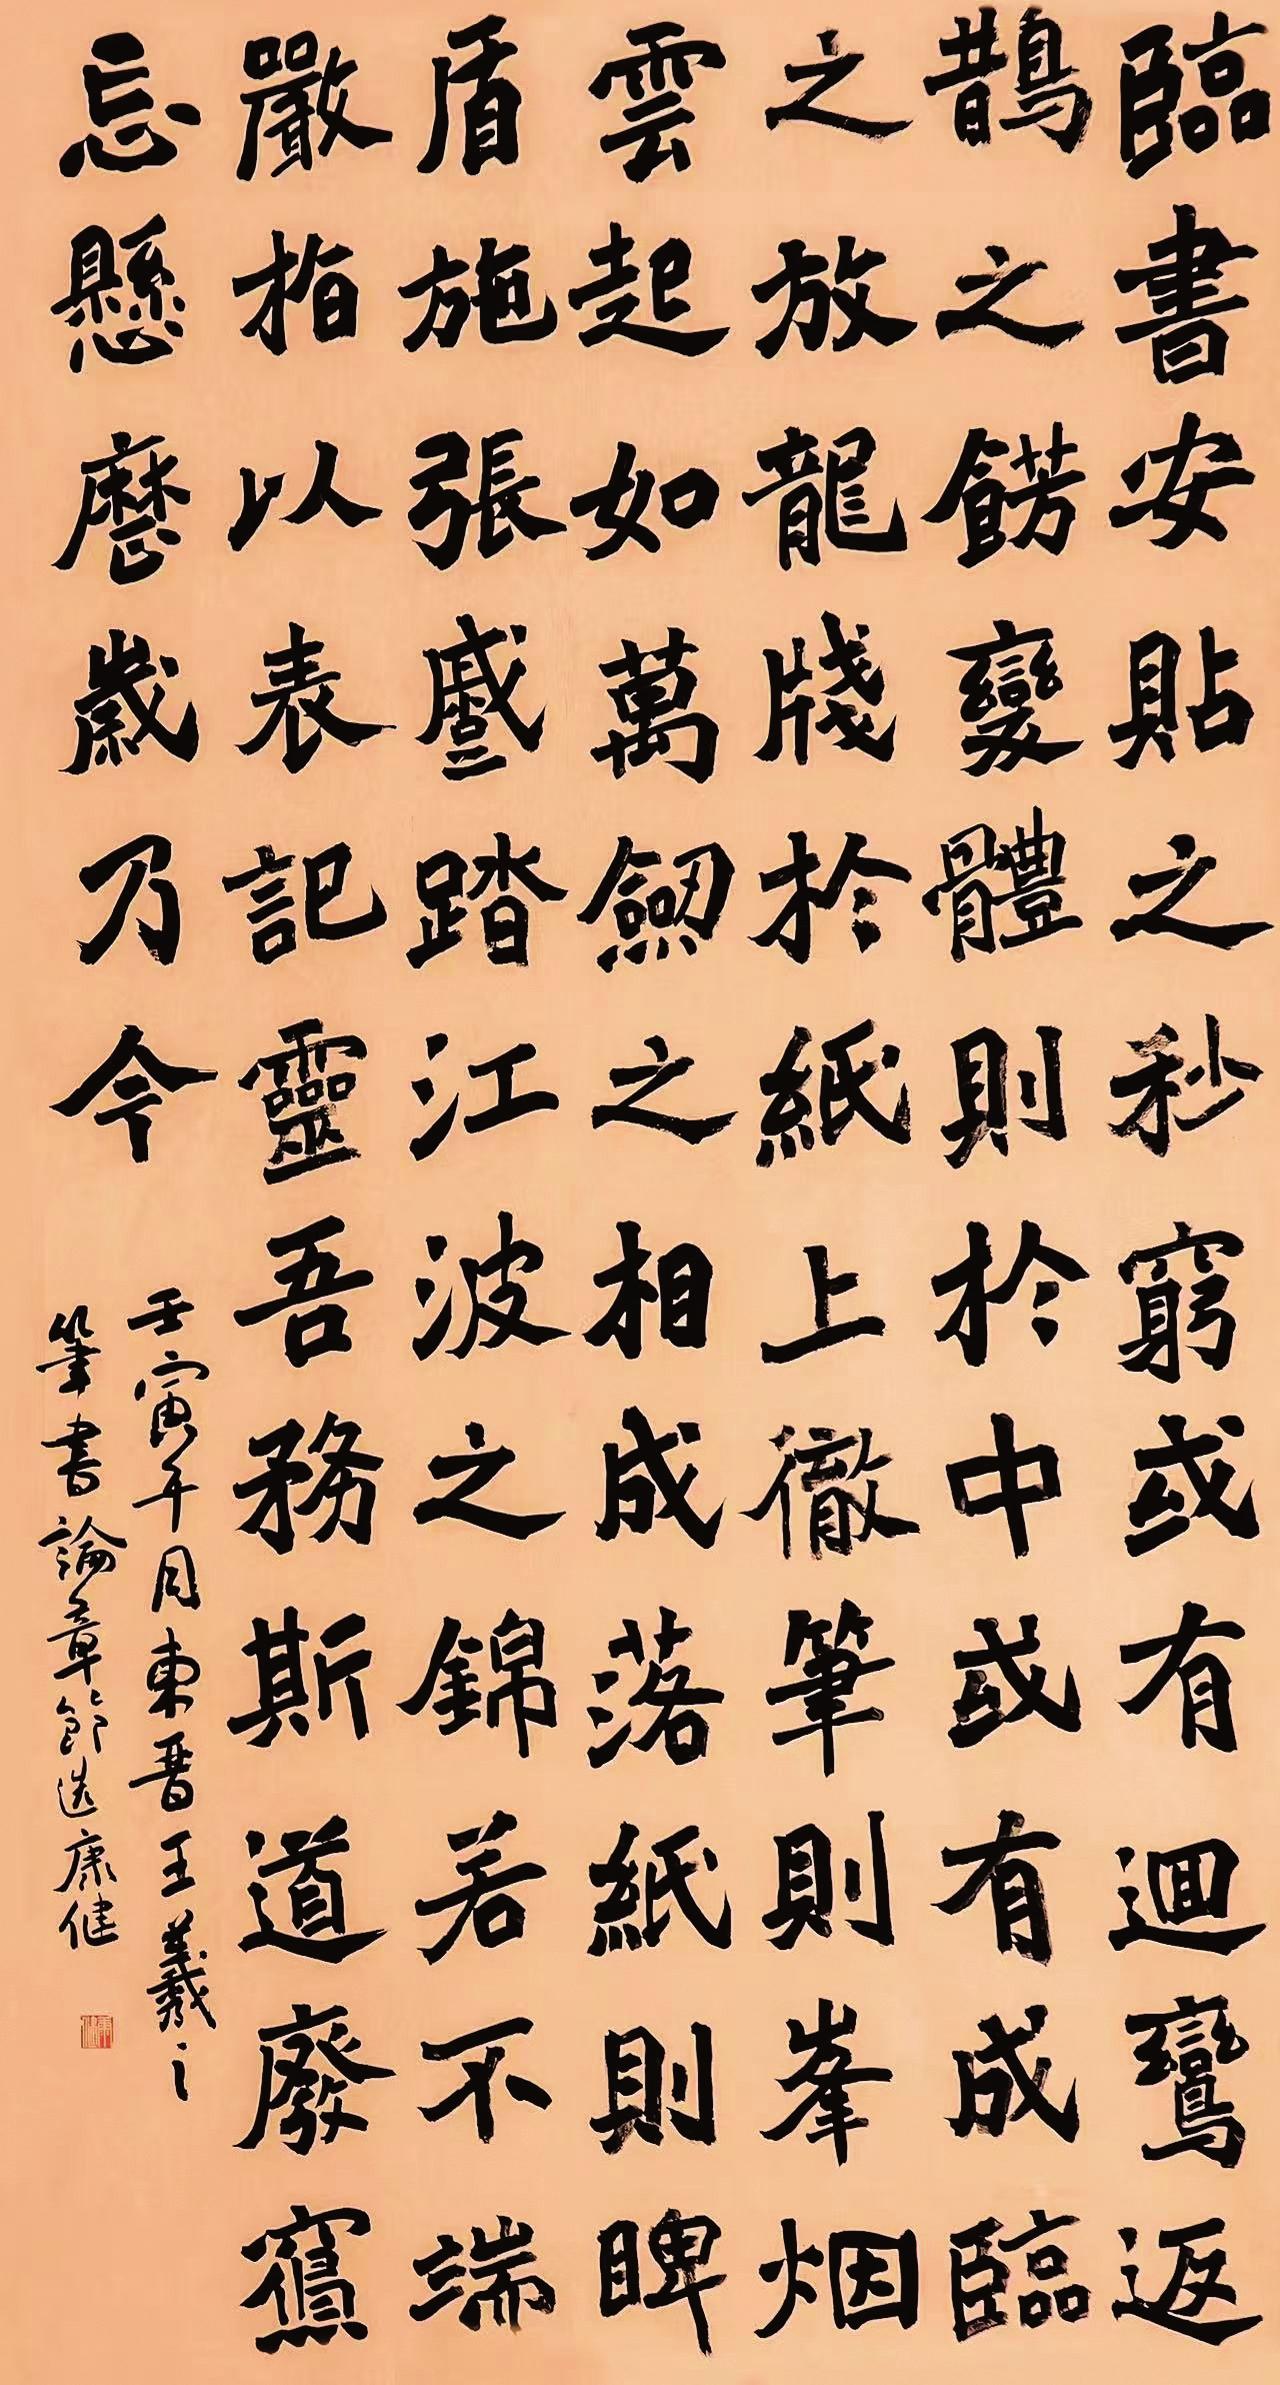 臨書安貼之秒窮或有迴鸞返
鵲之餝變體則於中或有成臨
之放龍牋於紙上徹筆則峯烟
雲起如萬劔之相成落紙則睥
盾施張蹙踏江波之錦若不端
嚴指以表記靈吾務斯道廢寢
忘懸歷歲乃今
壬寅年月東晋王羲之
筆書論章節选康健